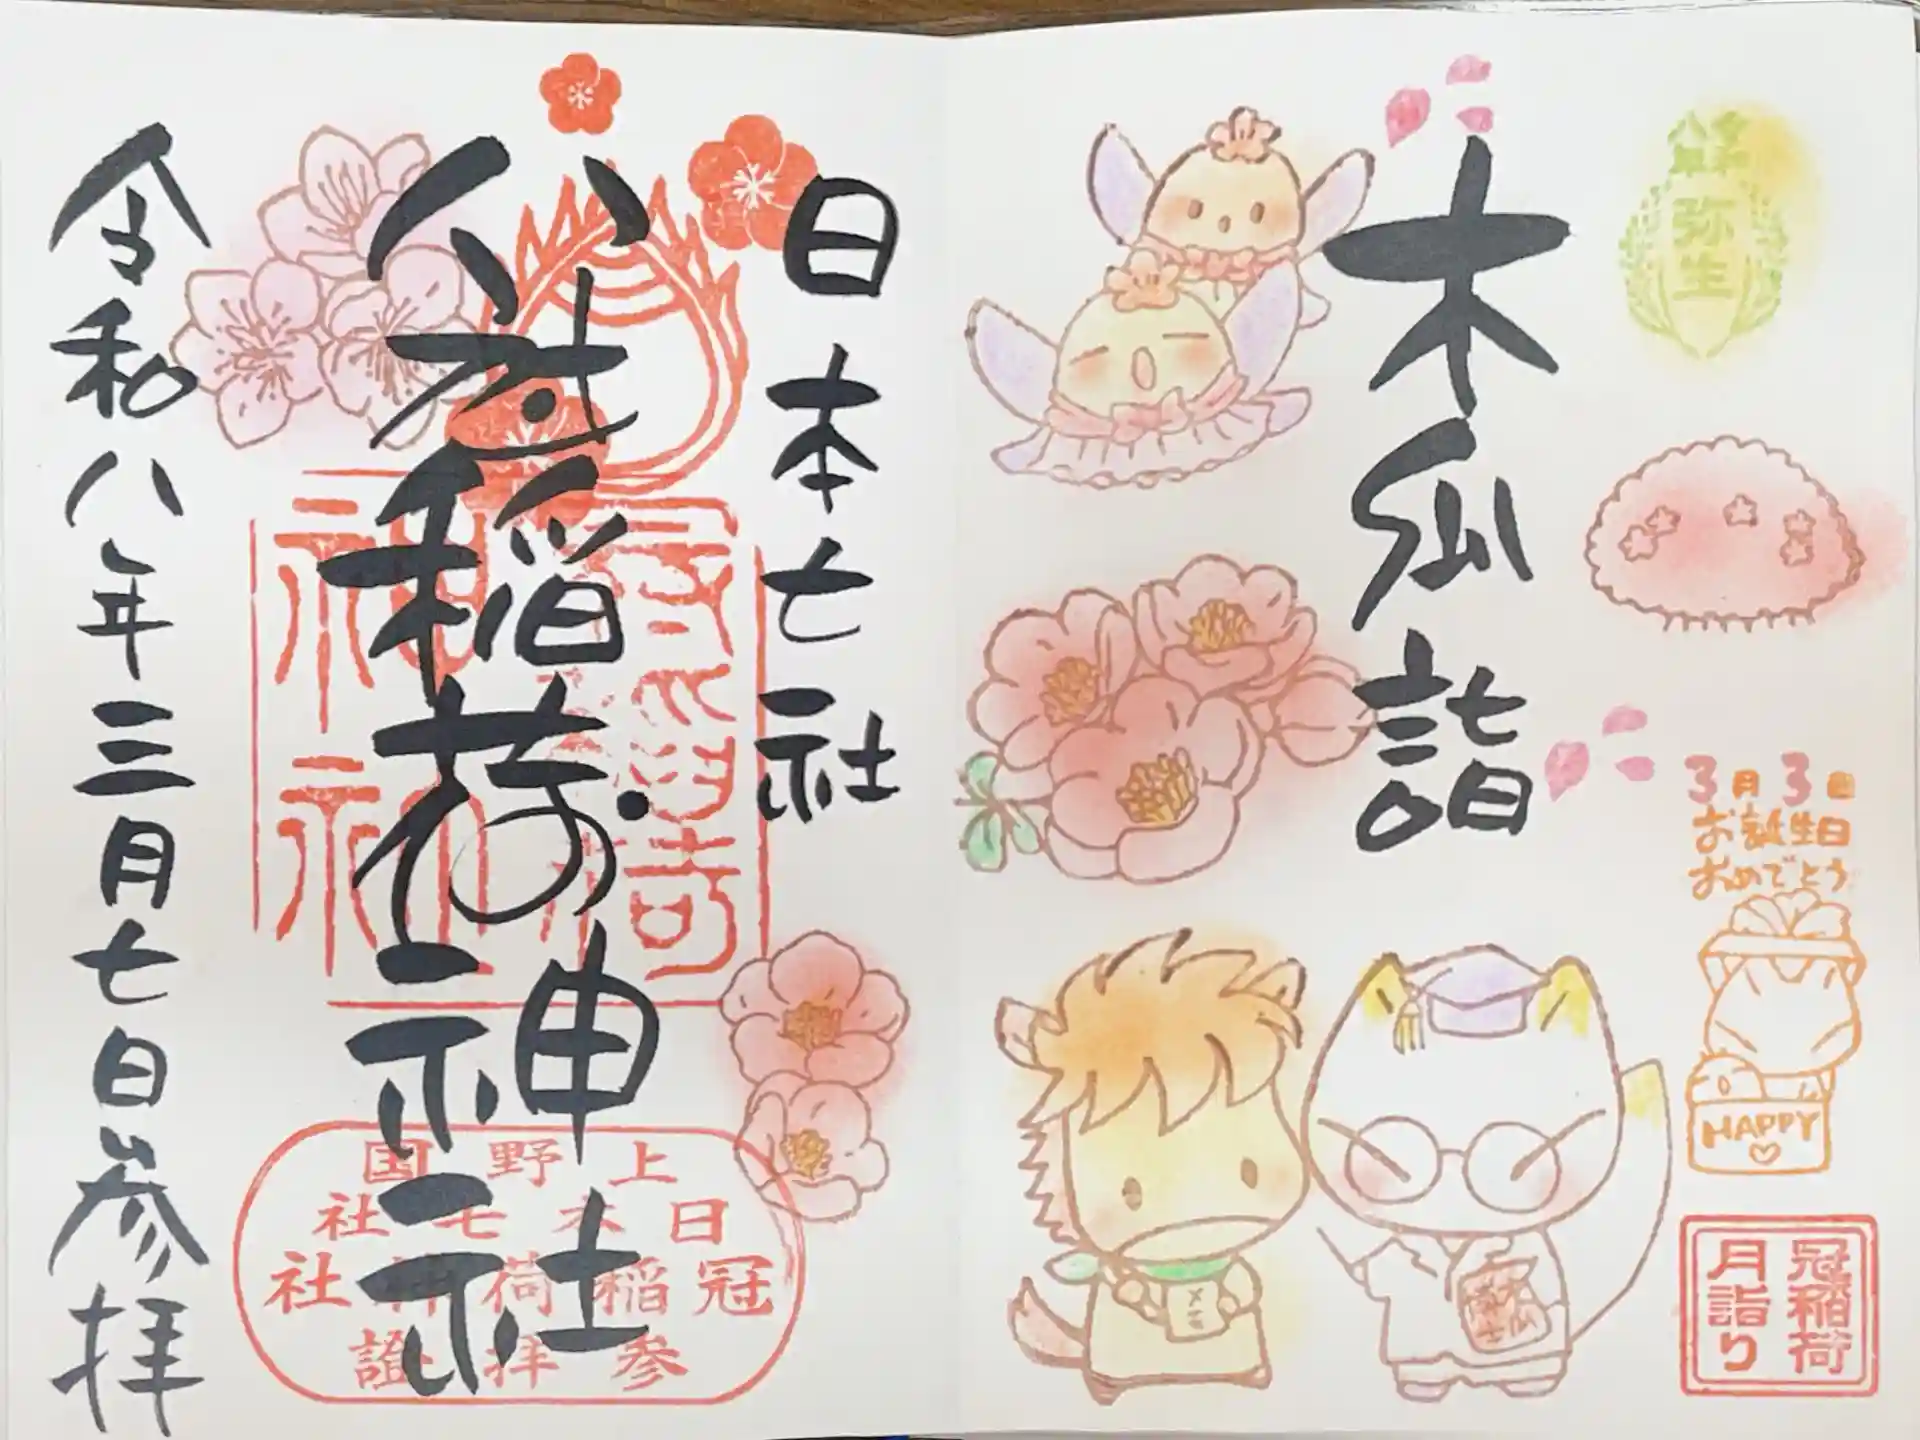 弥生
木瓜詣
3月3日
お誕生日
おめでとう
HAPPY
冠稲荷
月詣り
日本七社
稲荷神社
上野国
日本七社
冠稲荷神社
参拝證
令和八年三月七日参拝